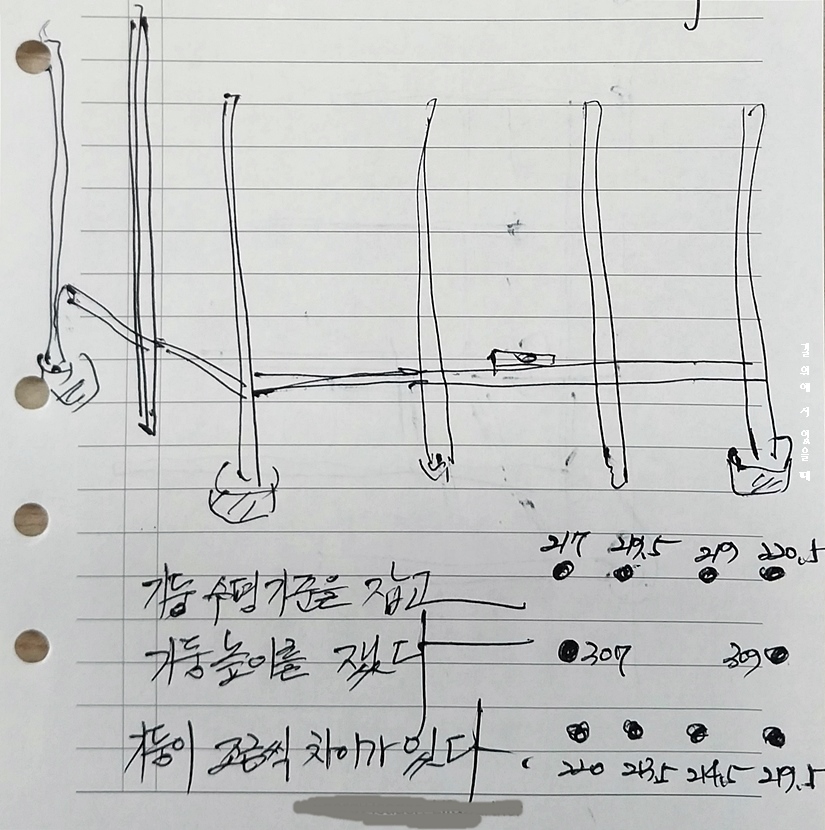 217 219.5 219 220.5
기둥 수평 기준을 잡고
기둥높이를 쟀다
307 309
기둥이 조금씩 차이가 있다
220 213.5 214.5 219.5
결의에 서 있을 때